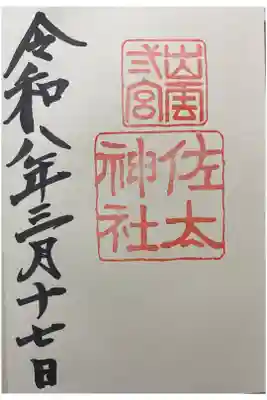 出雲
弍宮
佐太
神社
令和八年三月十七日